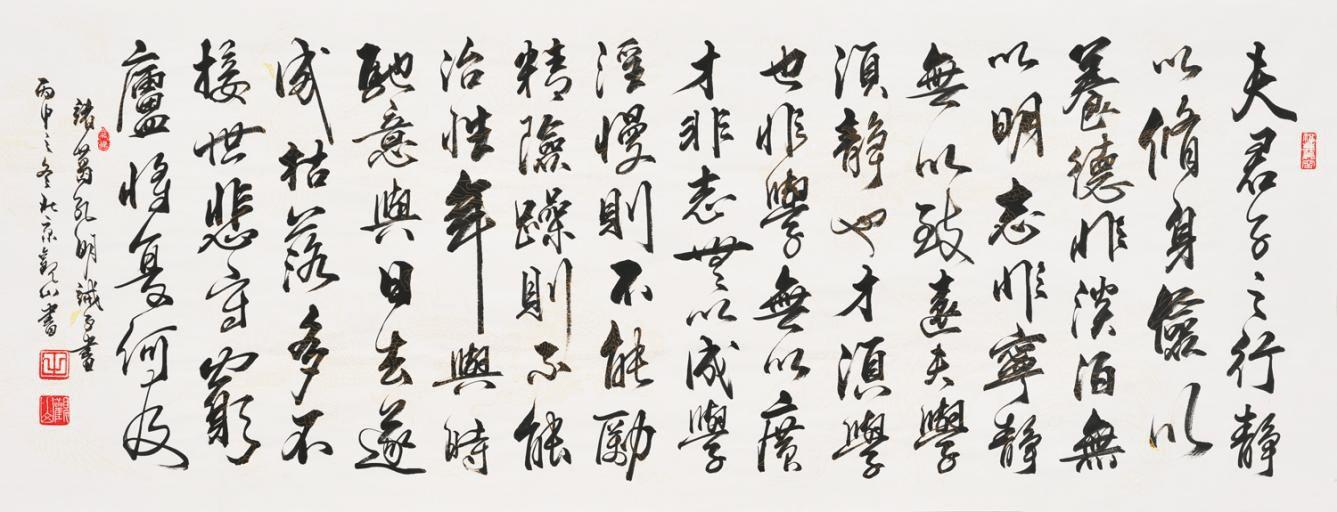 夫君子之行静
以脩身儉以
養德非淡泊無
以明志非寧静
無以致遠夫學
須静也才須學
也非學無以廣
才非志無以成學
淫慢則不能勵
精險躁則不能
治性年與時
馳意與日去遂
成枯落多不
接世悲守窮
廬將复何及
諸葛孔明誡子書
丙申之冬北京觀山書